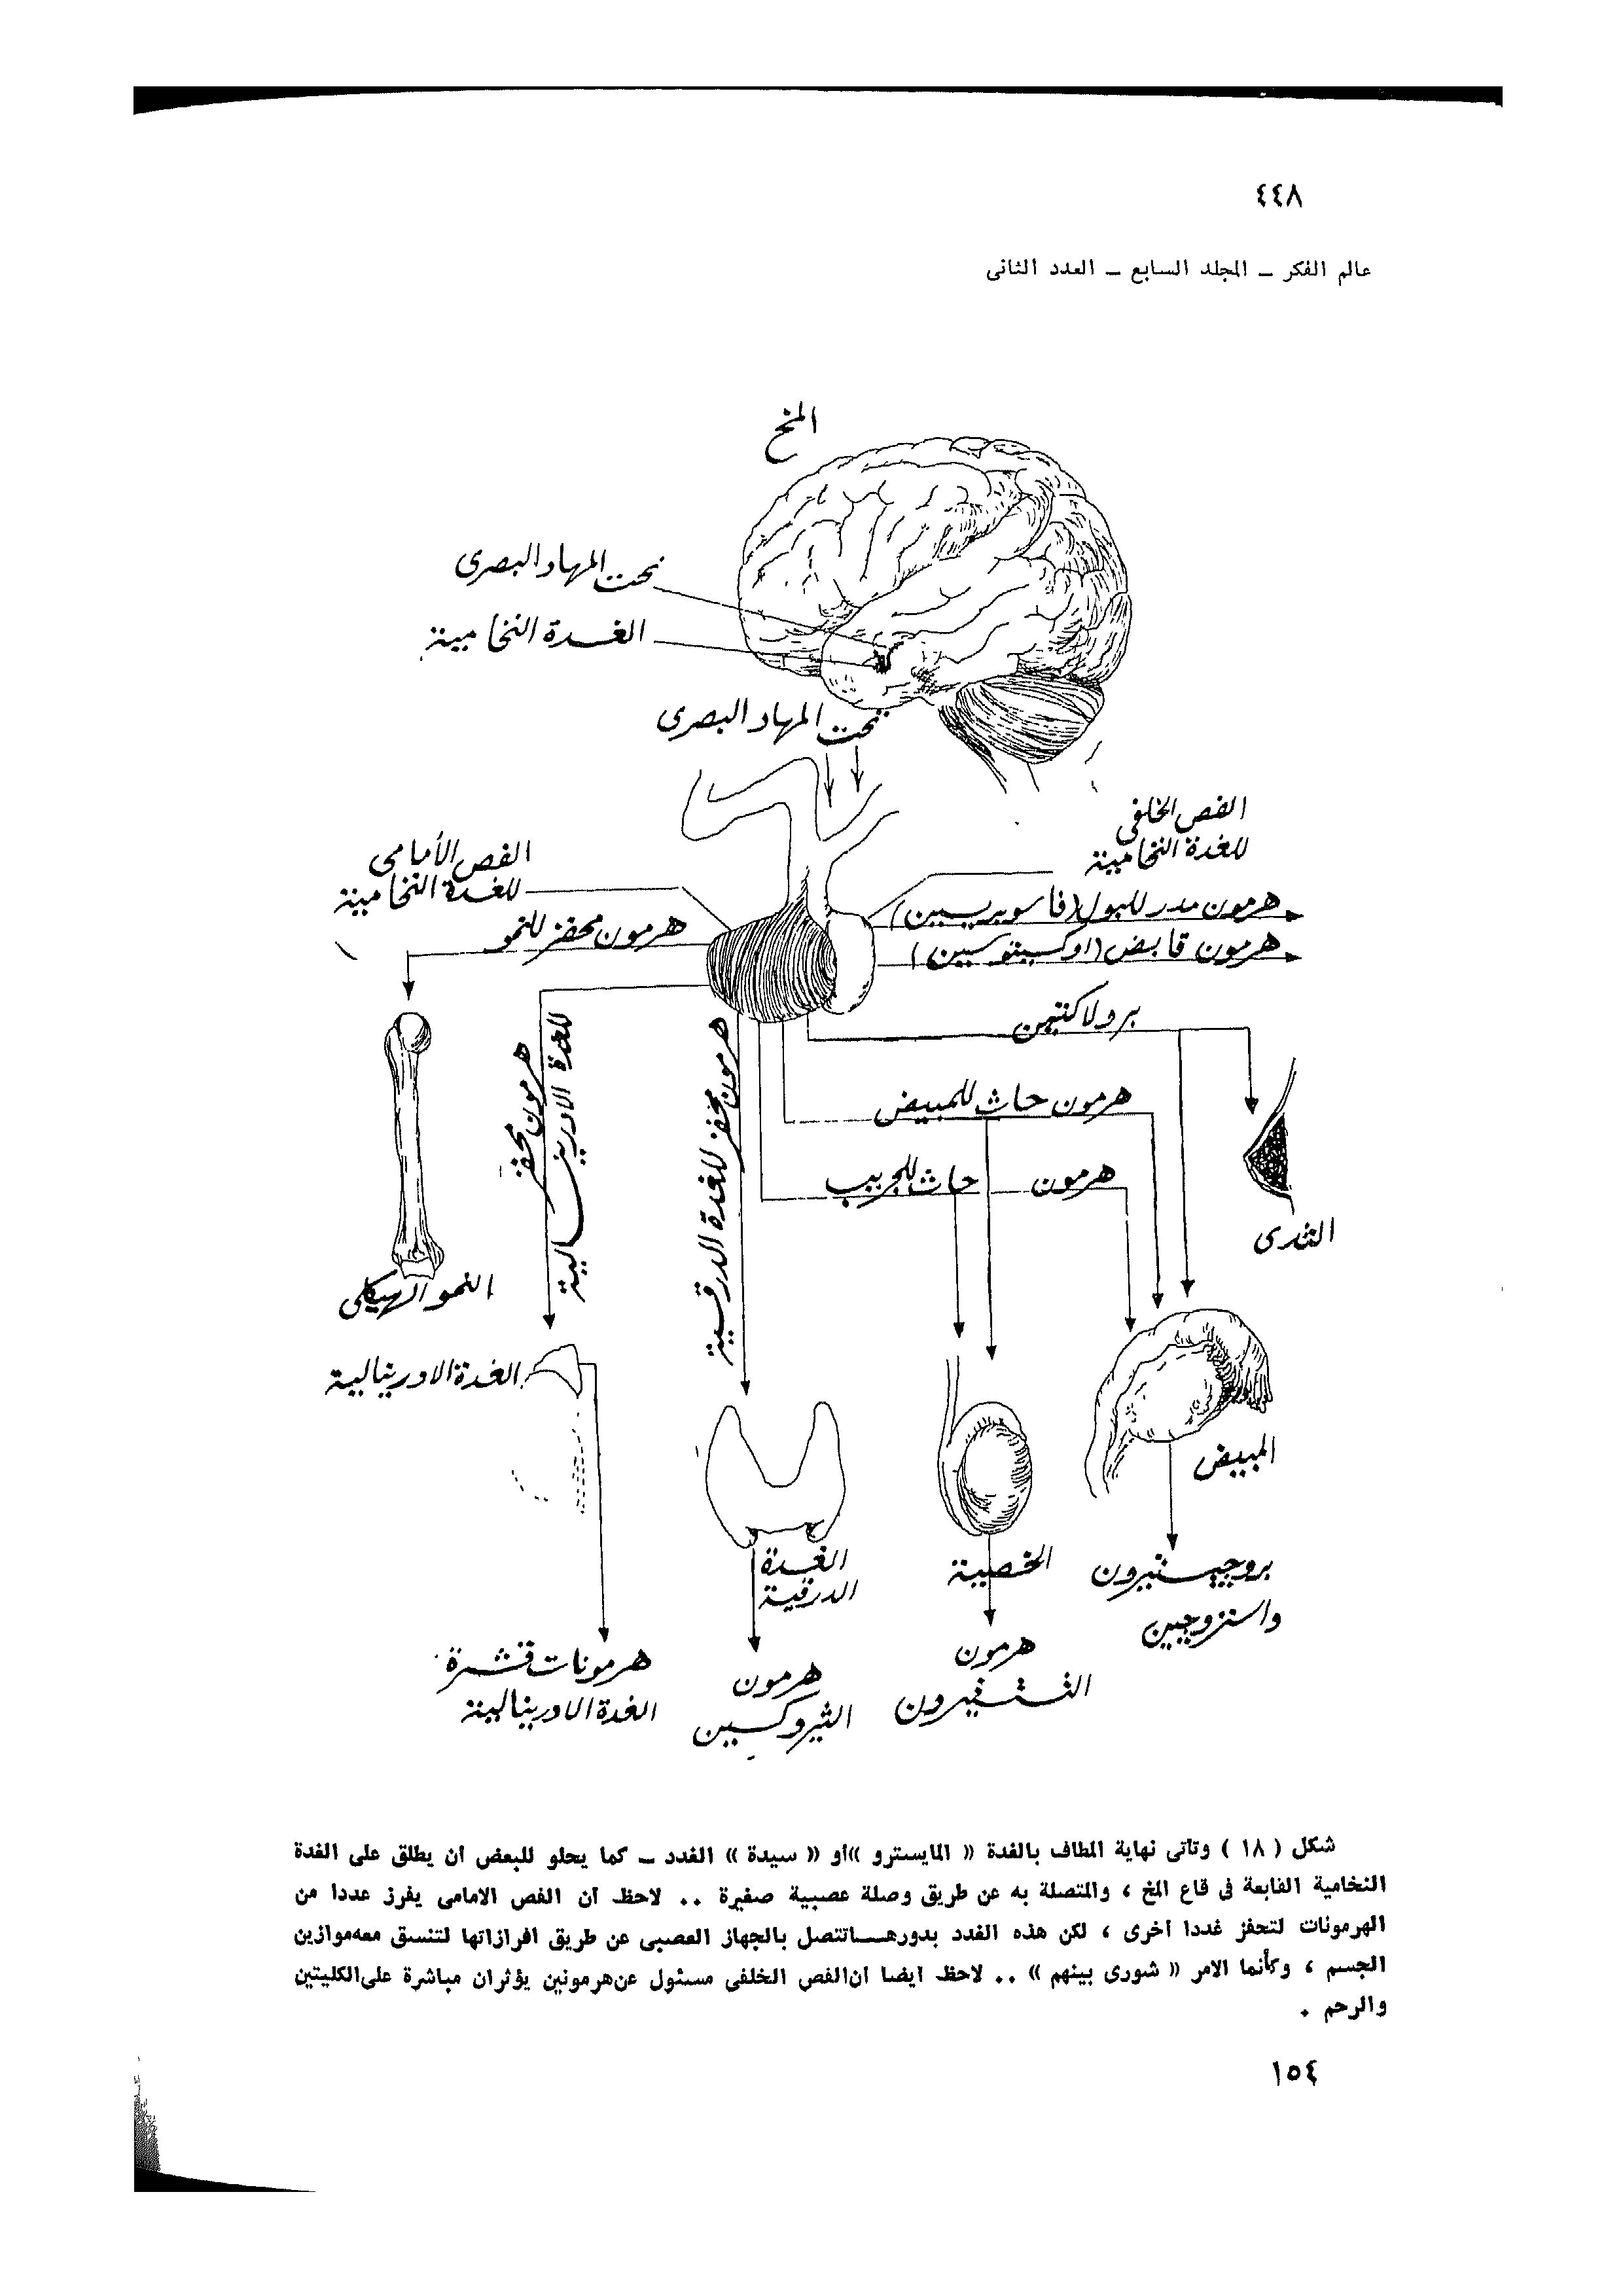 ٤٤٨
عالم الفكر ــ المجلد السابع ــ العدد الثانى
المخ
تحت المهاد البصرى
الغدة النخامية
تحت المهاد البصرى
الفص الخلفى
للغدة النخامية
الفص الأمامى
للغدة النخامية
هرمون مدر للبول (فاسوبريسين)
هرمون محفز للنمو
هرمون قابض (اوكسيتوسين)
برولاكتين
هرمون محفز
للغدة الادرينالية
هرمون محفز للغدة الدرقية
هرمون حاث للمبيض
هرمون حاث للجريب
الثدى
النمو الهيكلى
الغدة الادرينالية
المبيض
الغدة
الدرقية
الخصية
بروجيستيرون
واستروجيين
هرمونات قشرة
الغدة الادرينالية
هرمون
الثيروكسين
هرمون
شكل ( ١٨ ) وتاتى نهاية المطاف بالغدة « المايسترو »أو « سيدة » الغدد ــ كما يحلو للبعض ان يطلق على الغدة
النخامية القابعة فى قاع المخ ، والمتصلة به عن طريق وصلة عصبية صغيرة .. لاحظ ان الفص الامامى يفرز عددا من
الهرمونات لتحفز غددا اخرى ، لكن هذه الغدد بدورهـــاتتصل بالجهاز العصبى عن طريق افرازاتها لتنسق معه موازين
الجسم ، وكأنما الامر « شورى بينهم » .. لاحظ ايضا ان الفص الخلفى مسئول عن هرمونين يؤثران مباشرة على الكليتين
والرحم .
١٥٤